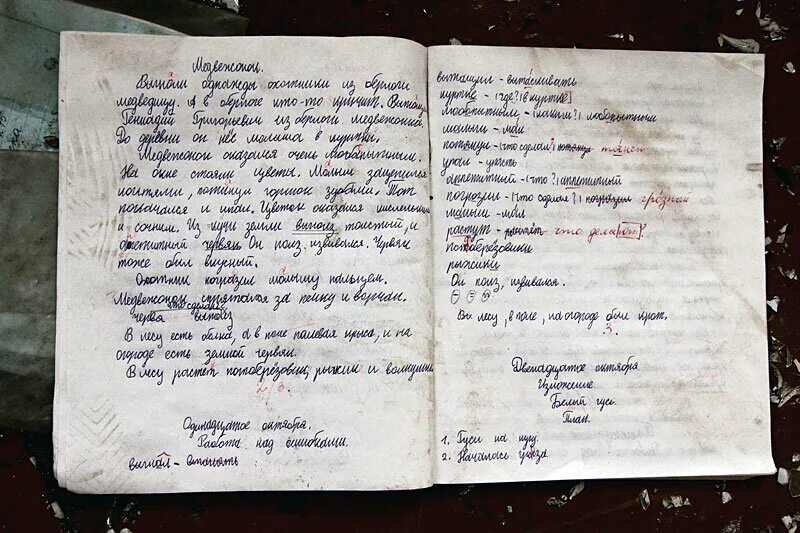 Медвежонок.
Выгнали однажды охотники из берлоги
медведицу. А в берлоге кто-то пищит.
Геннадий Григорьевич из берлоги медвежонка.
До деревни он нёс малыша в куртки.
Медвежонок оказался очень любопытным.
На окне стояли цветы. Малыш зацепился
когтями, потянул горшок зубами. Тот
покачался и упал. Цветок оказался
и сочным. Из кучи земли выполз толстый, и
червяк. Он полз, извивался. Червяк
тоже был вкусный.
Охотник погразил малышу пальцем.
Медвежонок спрятался за печку и ворчал.
что сделал?
червя выполз
В лесу есть белка, а в поле полевая крыса, и на
огороде есть земной червяк.
В лесу растёт подберёзовик, рыжик и волнушки
2/3.
Одинадцатое октября.
Работа над ошибками.
выгнал -
вытащил - вытаскивать
куртке - (где?) в куртке
любопытным - (каким?) любопытным
малыш - мал
потянул - (что сделал?) тянет
упал -
аппетитный - (что?) аппетитный
погрозил - (что сделал?) погрозил грозный
малыш - мал
растут - что делают
подберёзовики
рыжики
Он полз, извивался.
В лесу, в поле, на огороде были крот.
3.
Двенадцатое октября.
Изложение.
Белый гусь.
План.
1. Гуси на лугу.
2. Началось гроза.